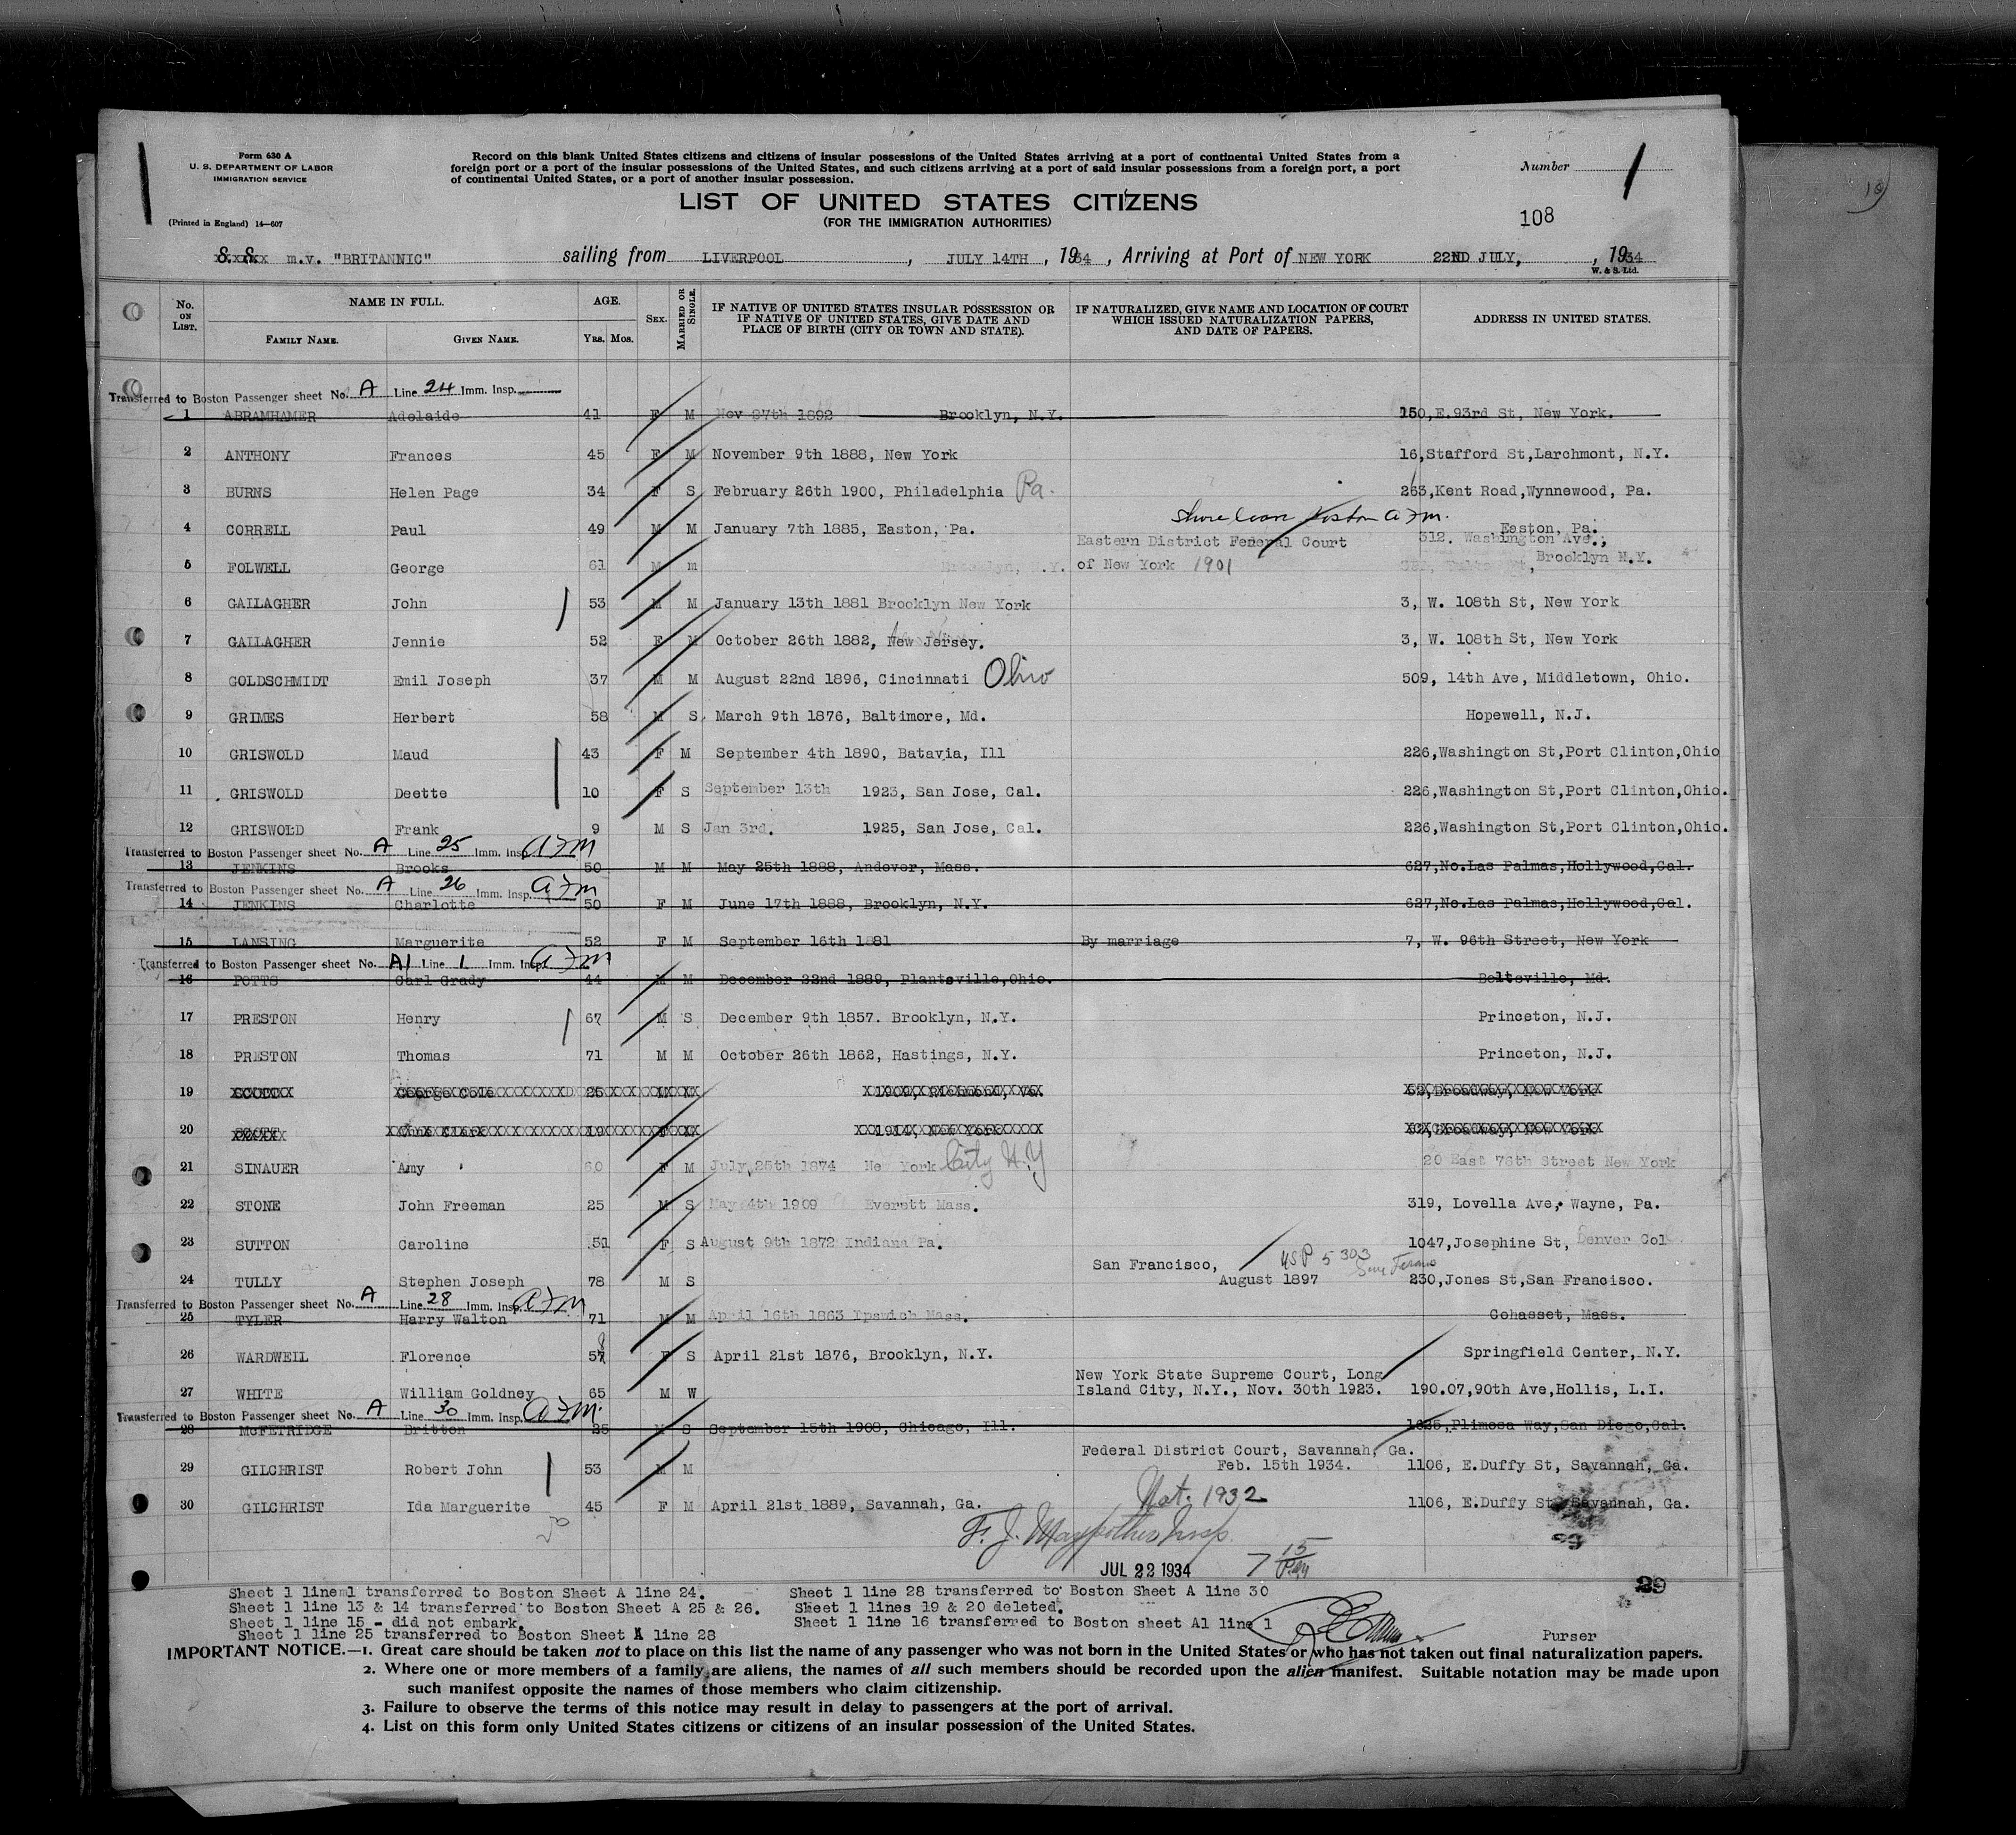 Form 630 A
U. S. DEPARTMENT OF LABOR
IMMIGRATION SERVICE
(Printed in England) 14—607
Record on this blank United States citizens and citizens of insular possessions of the United States arriving at a port of continental United States from a
foreign port or a port of the insular possessions of the United States, and such citizens arriving at a port of said insular possessions from a foreign port, a port
of continental United States, or a port of another insular possession.
Number 1
LIST OF UNITED STATES CITIZENS
(FOR THE IMMIGRATION AUTHORITIES)
108
m.v. "BRITANNIC" sailing from LIVERPOOL, JULY 14TH, 1934, Arriving at Port of NEW YORK 22ND JULY, 1934
W. & S. Ltd.
No. ON LIST. NAME IN FULL. FAMILY NAME. GIVEN NAME. AGE. Yrs. Mos. SEX. MARRIED OR SINGLE. IF NATIVE OF UNITED STATES INSULAR POSSESSION OR IF NATIVE OF UNITED STATES, GIVE DATE AND PLACE OF BIRTH (CITY OR TOWN AND STATE). IF NATURALIZED, GIVE NAME AND LOCATION OF COURT WHICH ISSUED NATURALIZATION PAPERS, AND DATE OF PAPERS. ADDRESS IN UNITED STATES.
Transferred to Boston Passenger sheet No. A Line 24 Imm. Insp.
1 ABRAMHAMER Adelaide 41 F M Nov 27th 1892 Brooklyn, N.Y. 150, E.93rd St, New York.
2 ANTHONY Frances 45 F M November 9th 1888, New York 16,Stafford St,Larchmont, N.Y.
3 BURNS Helen Page 34 F S February 26th 1900, Philadelphia Pa. 263,Kent Road,Wynnewood, Pa.
4 CORRELL Paul 49 M M January 7th 1885, Easton, Pa. Easton, Pa.
Eastern District Federal Court 312. Washington Ave.,
5 FOLWELL George 61 M m of New York 1901 Brooklyn N.Y.
6 GALLAGHER John 53 M M January 13th 1881 Brooklyn New York 3, W. 108th St, New York
7 GALLAGHER Jennie 52 F M October 26th 1882, New Jersey. 3, W. 108th St, New York
8 GOLDSCHMIDT Emil Joseph 37 M M August 22nd 1896, Cincinnati Ohio 509, 14th Ave, Middletown, Ohio.
9 GRIMES Herbert 58 M S March 9th 1876, Baltimore, Md. Hopewell, N.J.
10 GRISWOLD Maud 43 F M September 4th 1890, Batavia, Ill 226,Washington St,Port Clinton,Ohio
11 GRISWOLD Deette 10 F S September 13th 1923, San Jose, Cal. 226,Washington St,Port Clinton,Ohio.
12 GRISWOLD Frank 9 M S Jan 3rd. 1925, San Jose, Cal. 226,Washington St,Port Clinton,Ohio.
Transferred to Boston Passenger sheet No. A Line 25 Imm. Insp.
13 JENKINS Brooks 50 M M May 25th 1888, Andover, Mass. 627,No.Las Palmas,Hollywood,Cal.
Transferred to Boston Passenger sheet No. A Line 26 Imm. Insp.
14 JENKINS Charlotte 50 F M June 17th 1888, Brooklyn, N.Y. 627,No.Las Palmas,Hollywood,Cal.
15 LANSING Marguerite 52 F M September 16th 1881 By marriage 7, W. 96th Street, New York
Transferred to Boston Passenger sheet No. A1 Line 1 Imm. Insp.
16 POTTS Carl Grady 44 M M December 22nd 1889, Plantsville,Ohio. Beltsville, Md.
17 PRESTON Henry 67 M S December 9th 1857. Brooklyn, N.Y. Princeton, N.J.
18 PRESTON Thomas 71 M M October 26th 1862, Hastings, N.Y. Princeton, N.J.
19 SCOTT George Cole 25
20 SCOTT 19 1914, New York
21 SINAUER Amy 60 F M July 25th 1874 New York City N.Y 20 East 76th Street New York
22 STONE John Freeman 25 M S May 4th 1909 Everett Mass. 319, Lovella Ave, Wayne, Pa.
23 SUTTON Caroline 51 F S August 9th 1872 Indiana Pa. 1047,Josephine St, Denver Col
San Francisco,
24 TULLY Stephen Joseph 78 M S August 1897 230,Jones St,San Francisco.
Transferred to Boston Passenger sheet No. A Line 28 Imm. Insp.
25 TYLER Harry Walton 71 M M April 16th 1863 Ipswich Mass. Cohasset, Mass.
26 WARDWELL Florence 57 F S April 21st 1876, Brooklyn, N.Y. Springfield Center, N.Y.
New York State Supreme Court, Long
27 WHITE William Goldney 65 M W Island City, N.Y., Nov. 30th 1923. 190.07,90th Ave,Hollis, L.I.
Transferred to Boston Passenger sheet No. A Line 30 Imm. Insp.
28 McFETRIDGE Britton 25 M S September 15th 1908, Chicago, Ill. 1625,Plimosa Way,San Diego,Cal.
Federal District Court, Savannah, Ga.
29 GILCHRIST Robert John 53 M M Feb. 15th 1934. 1106, E.Duffy St, Savannah, Ga.
30 GILCHRIST Ida Marguerite 45 F M April 21st 1889, Savannah, Ga. Nat. 1932 1106, E.Duffy St, Savannah, Ga.
JUL 22 1934
29
Sheet 1 line 1 transferred to Boston Sheet A line 24. Sheet 1 line 28 transferred to Boston Sheet A line 30
Sheet 1 line 13 & 14 transferred to Boston Sheet A 25 & 26. Sheet 1 lines 19 & 20 deleted.
Sheet 1 line 15 - did not embark. Sheet 1 line 16 transferred to Boston sheet A1 line 1
Sheet 1 line 25 transferred to Boston Sheet A line 28 Purser
IMPORTANT NOTICE.—1. Great care should be taken not to place on this list the name of any passenger who was not born in the United States or who has not taken out final naturalization papers.
2. Where one or more members of a family are aliens, the names of all such members should be recorded upon the alien manifest. Suitable notation may be made upon
such manifest opposite the names of those members who claim citizenship.
3. Failure to observe the terms of this notice may result in delay to passengers at the port of arrival.
4. List on this form only United States citizens or citizens of an insular possession of the United States.